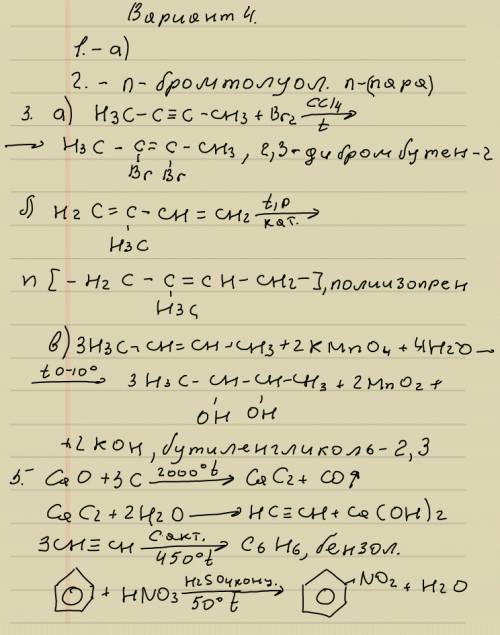 Вариант 4.
1. - а)
2. - п- бромтолуол. п-(пара)
3. а) H3C-C≡C-CH3 + Br2 CCl4 t →
→ H3C - C = C - CH3, 2,3-дибромбутен-2
Br Br
б) H2C=C-CH=CH2 t,p кат. →
H3C
n [-H2C-C=CH-CH2-], полиизопрен
H3C
в) 3H3C-CH=CH-CH3+2KMnO4+4H2O →
t 0-10° → 3H3C-CH-CH-CH3 + 2MnO2 +
OH OH
+2KOH, бутиленгликоль-2,3
5.- CaO+3C 2000°t → CaC2+CO↑
CaC2+2H2O → HC≡CH+Ca(OH)2
3CH≡CH Cакт. 450°t → C6H6, бензол.
+ HNO3 H2SO4конц. 50°t → NO2 + H2O